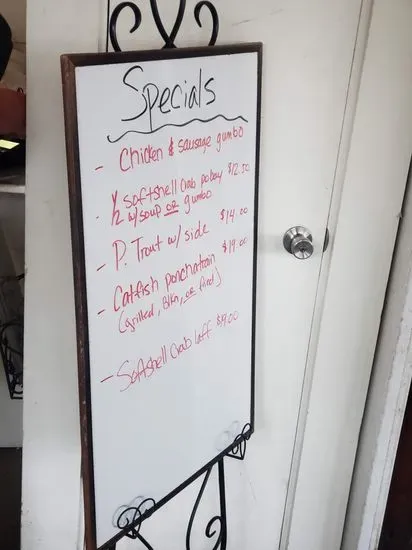 Specials
- Chicken & sausage gumbo
- 1/2 softshell crab poboy $12.50
w/soup or gumbo
- P. Trout w/ side $14.00
- Catfish ponchatrain $19.00
(grilled, Blkn, or fried)
- Softshell Crab Laff